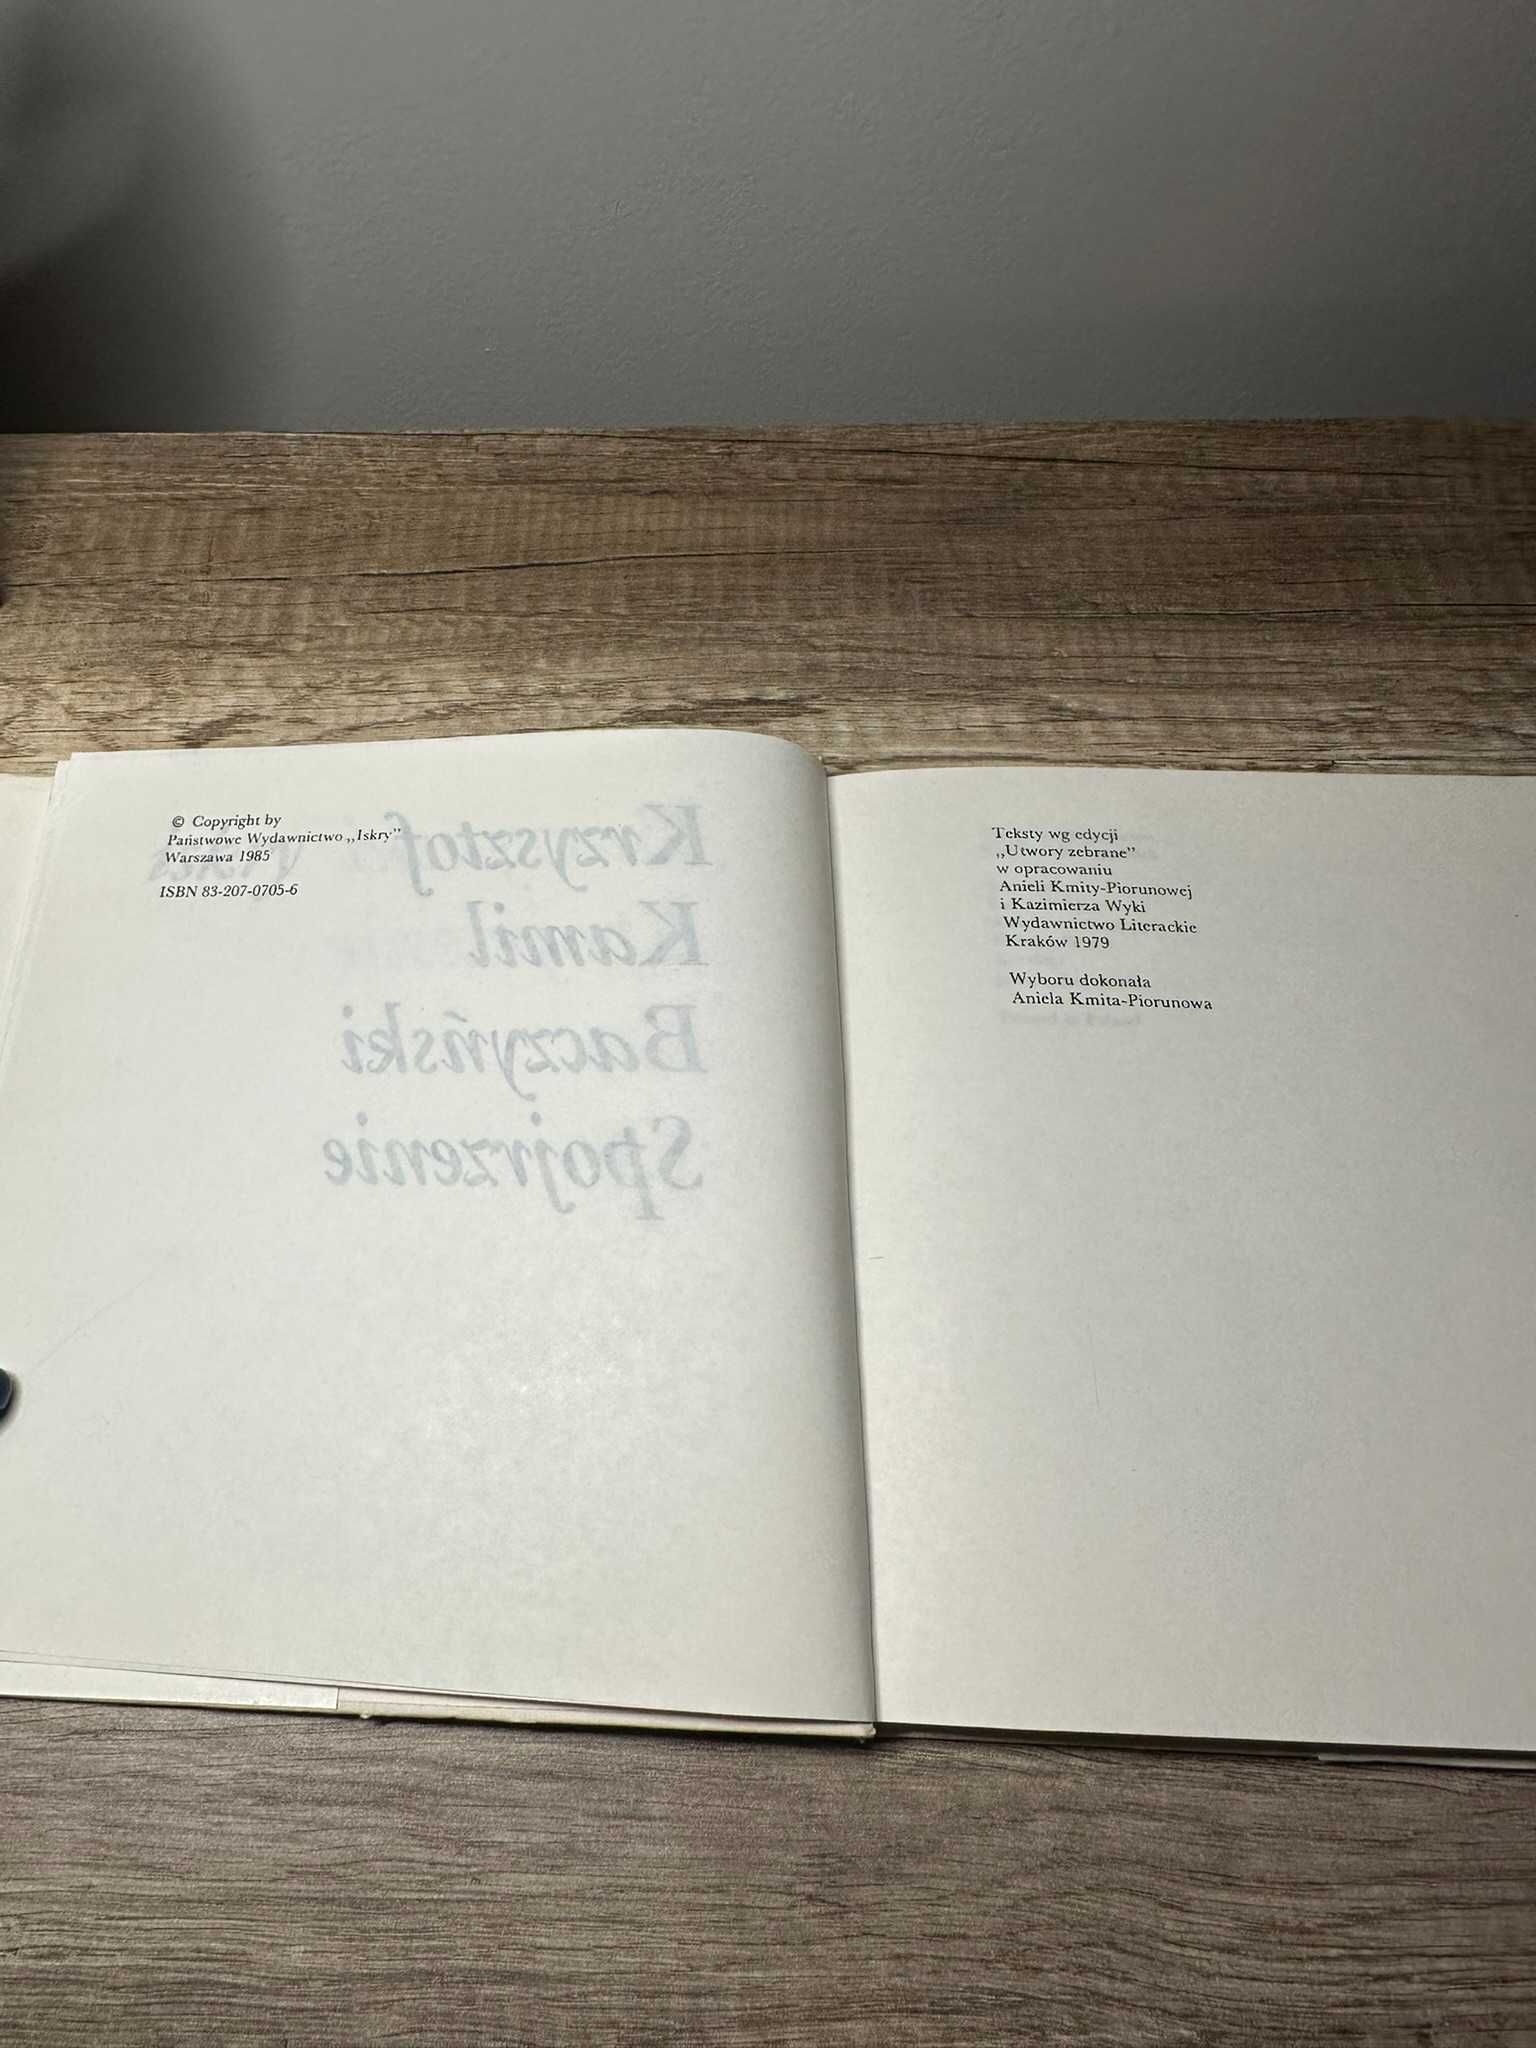 © Copyright by
Państwowe Wydawnictwo „Iskry”
Warszawa 1985
ISBN 83-207-0705-6
Krzysztof
Kamil
Baczyński
Spojrzenie
Teksty wg edycji
„Utwory zebrane”
w opracowaniu
Anieli Kmity-Piorunowej
i Kazimierza Wyki
Wydawnictwo Literackie
Kraków 1979
Wyboru dokonała
Aniela Kmita-Piorunowa